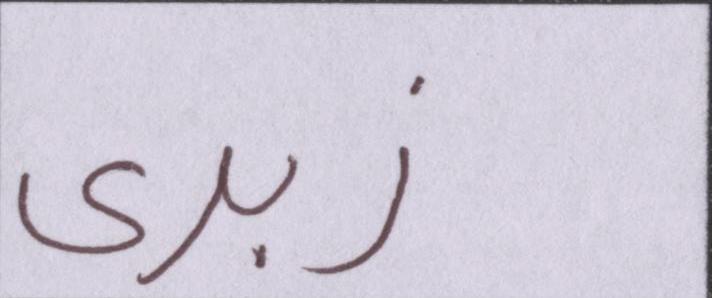 زبری